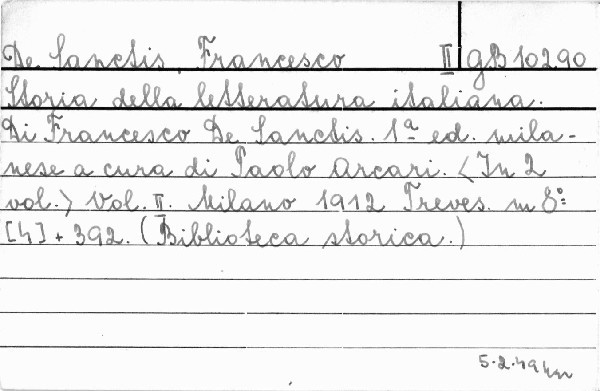 De Sanctis, Francesco II gB 10290
Storia della letteratura italiana.
Di Francesco De Sanctis. 1ª ed. mila-
nese a cura di Paolo Arcari. <In 2
vol.> Vol. II. Milano 1912 Treves. in 8°:
[4] + 392. (Biblioteca storica.)
5.2.49